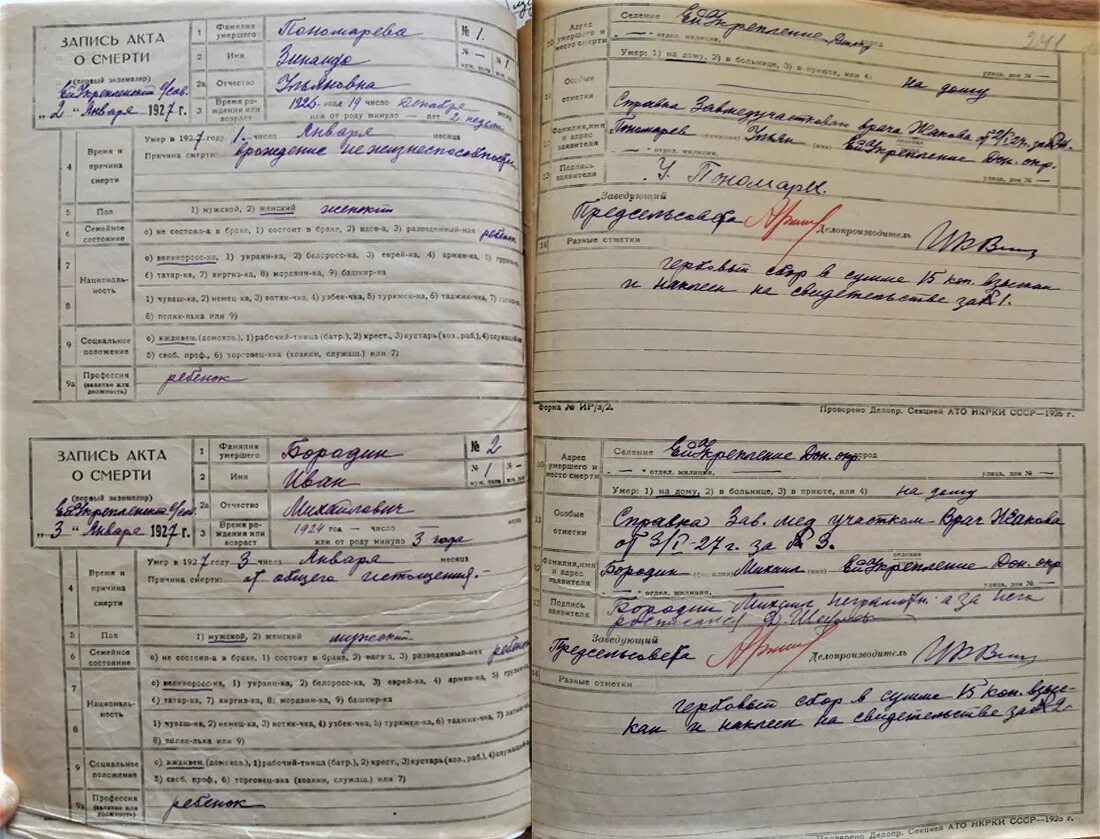 ЗАПИСЬ АКТА
О СМЕРТИ
(первый экземпляр)
„2" Января 1927 г.
1 Фамилия умершего Пономарева № 1.
2 Имя Зинаида № — № 1
муж. пола жен.
2а Отчество Ульяновна
3 Время рождения или возраст 1926 года 19 число Декабря
или от роду минуло — лет 2 недели
4 Время и причина смерти
Умер в 1927 году 1 числа Января месяца
Причина смерти: врождение нежизнеспособности
5 Пол 1) мужской, 2) женский женский
6 Семейное состояние 0) не состоял-а в браке, 1) состоит в браке, 2) вдов-а, 3) разведенный-ная ребенок
7 Национальность
0) великоросс-ка, 1) украин-ка, 2) белоросс-ка, 3) еврей-ка, 4) армян-ка, 5) грузин-
6) татар-ка, 7) киргиз-ка, 8) мордвин-ка, 9) башкир-ка
8
1) чуваш-ка, 2) немец-ка, 3) вотяк-чка, 4) узбек-чка, 5) туркмен-ка, 6) таджик-чка, 7) латыш-
8) поляк-лька или 9)
9 Социальное положение
0) иждивен. (домохоз.), 1) рабочий-тница (батр.), 2) крест., 3) кустарь (хоз., раб.), 4) служащий
5) своб. проф., 6) торговец-вка (хозяин, служащ.) или 7)
9а Профессия (занятие или должность) ребенок
ЗАПИСЬ АКТА
О СМЕРТИ
(первый экземпляр)
„3" Января 1927 г.
1 Фамилия умершего Бородин № 2
2 Имя Иван № 1 № —
муж. пола жен.
2а Отчество Михайлович
3 Время рождения или возраст 1924 год — число
или от роду минуло 3 года
4 Время и причина смерти
Умер в 1927 году 3 числа Января месяца
Причина смерти: от общего истощения.
5 Пол 1) мужской, 2) женский мужской
6 Семейное состояние 0) не состоял-а в браке, 1) состоит в браке, 2) вдов-а, 3) разведенный-ная ребенок
7 Национальность
0) великоросс-ка, 1) украин-ка, 2) белоросс-ка, 3) еврей-ка, 4) армян-ка, 5) грузин-
6) татар-ка, 7) киргиз-ка, 8) мордвин-ка, 9) башкир-ка
8
1) чуваш-ка, 2) немец-ка, 3) вотяк-чка, 4) узбек-чка, 5) туркмен-ка, 6) таджик-чка, 7) латыш-
8) поляк-лька или 9)
9 Социальное положение
0) иждивен. (домохоз.), 1) рабочий-тница (батр.), 2) крест., 3) кустарь (хоз., раб.), 4) служащий
5) своб. проф., 6) торговец-вка (хозяин, служащ.) или 7)
9а Профессия (занятие или должность) ребенок
241
10 Адрес умершего и место смерти
Селение Ейукрепление город
— " — отдел. милиции, улица, дом №
Умер: 1) на дому, 2) в больнице, 3) в приюте, или 4) на дому
11 Особые отметки
Справка Завмедучастком врача Жакова
12 Фамилия, имя и адрес заявителя
Пономарев (фамилия) Ульян (имя) Ейукрепление Дон. окр.
— " — отдел. милиции, улица, дом №
13 Подпись заявителя У. Пономарев
Заведующий
Предсельсовета
Делопроизводитель
14 Разные отметки
гербовый сбор в сумме 15 коп. взыскан
и наклеен на свидетельстве за № 1.
Форма № ИР/3/2. Проверено Делопр. Секцией АТО НКРКИ СССР—1926 г.
10 Адрес умершего и место смерти
Селение Ейукрепление Дон. окр. город
— " — отдел. милиции, улица, дом №
Умер: 1) на дому, 2) в больнице, 3) в приюте, или 4) на дому
11 Особые отметки
Справка Зав. мед участком Врач Жакова
от 3/I-27 г. за № 3.
12 Фамилия, имя и адрес заявителя
селение
Бородин (фамилия) Михаил (имя) Ейукрепление Дон. окр
— " — отдел. милиции, улица, дом №
13 Подпись заявителя
Бородин Михаил неграмотн. а за него
Заведующий
Предсельсовета
Делопроизводитель
14 Разные отметки
гербовый сбор в сумме 15 коп. взыс-
кан и наклеен на свидетельстве за № 2.
Проверено Делопр. Секцией АТО НКРКИ СССР—1926 г.